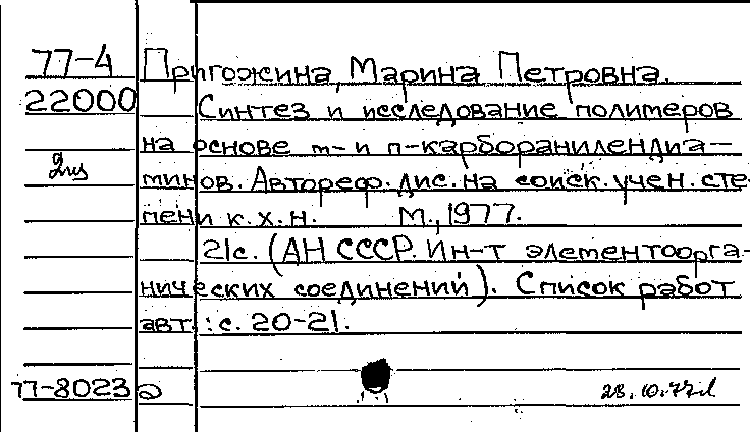 77-4 Пригожина, Марина Петровна.
22000 Синтез и исследование полимеров
на основе m- и п-карборанилендиа-
минов. Автореф. дис. на соиск. учен. сте-
пени к.х.н. М., 1977.
21с. (АН СССР. Ин-т элементоорга-
нических соединений). Список работ
авт.: с. 20-21.
77-8023 д 28.10.77